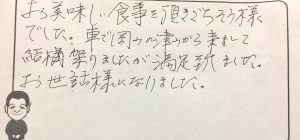 お美味しい食事を頂きごちそう様
でした。車で岡山の津山から来まして
結構登りましたが満足致しました。
お世話様になりました。